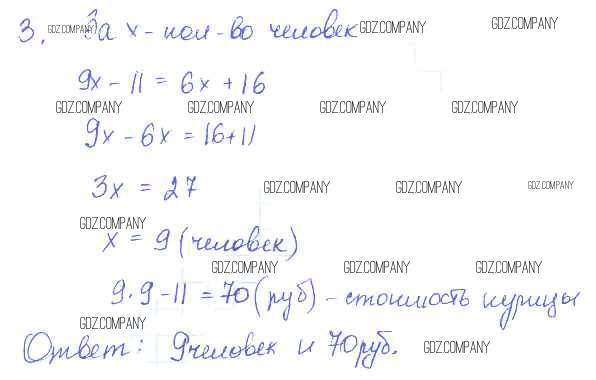 3. GDZ.COMPANY За x - кол-во человек GDZ.COMPANY GDZ.COMPANY
9x - 11 = 6x + 16
GDZ.COMPANY GDZ.COMPANY GDZ.COMPANY GDZ.COMPANY
9x - 6x = 16+11
3x = 27 GDZ.COMPANY GDZ.COMPANY GDZ.COMPANY
GDZ.COMPANY
x = 9 (человек)
GDZ.COMPANY GDZ.COMPANY GDZ.COMPANY
9·9-11 = 70 (руб) - стоимость курицы
GDZ.COMPANY
Ответ: 9человек и 70руб. GDZ.COMPANY